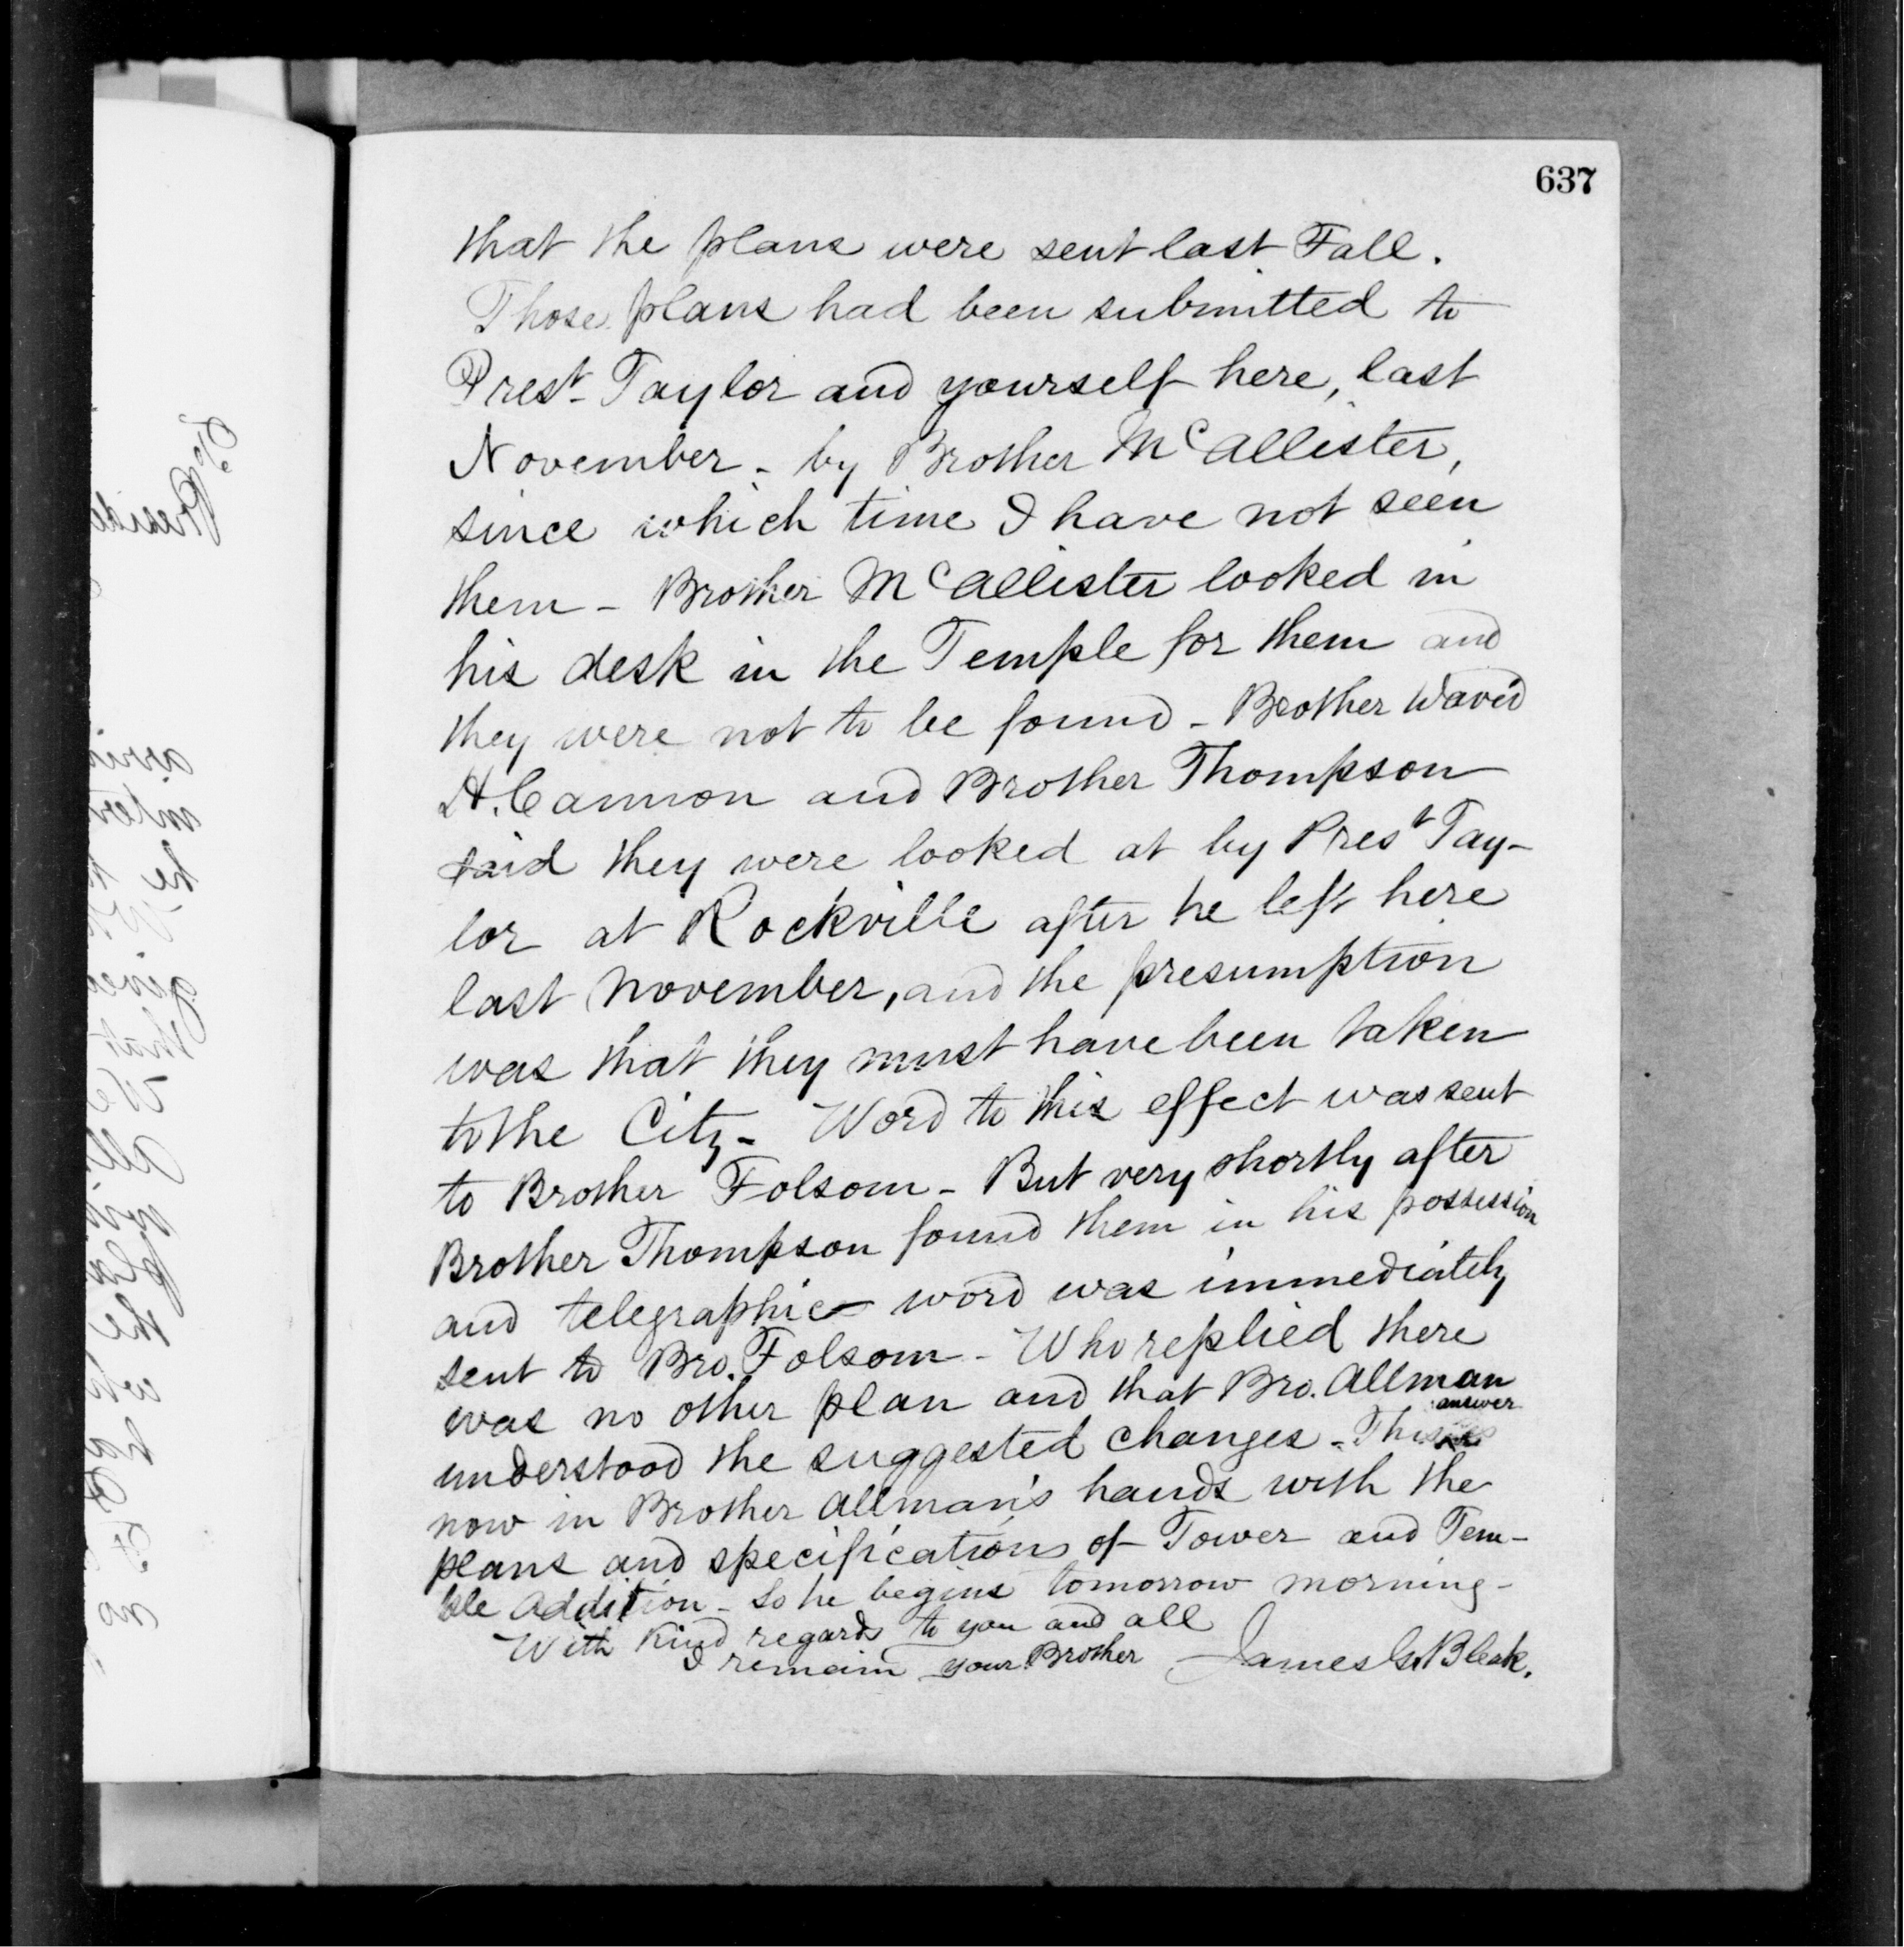 637
that the plans were sent last Fall.
Those plans had been submitted to
Prest. Taylor and yourself here, last
November - by Brother McAllister,
since which time I have not seen
them - Brother McAllister looked in
his desk in the Temple for them and
they were not to be found - Brother David
H. Cannon and Brother Thompson
said they were looked at by Prest Tay-
lor at Rockville after he left here
last November, and the presumption
was that they must have been taken
to the City - Word to this effect was sent
to Brother Folsom - But very shortly after
Brother Thompson found them in his possession
and telegraphic word was immediately
sent to Bro. Folsom - Who replied there
was no other plan and that Bro. Allman
understood the suggested changes - This answer is
now in Brother Allman's hands with the
plans and specifications of Tower and Tem-
ple Addition - So he begins tomorrow morning -
With Kind regards to you and all
I remain your Brother James G. Bleak.